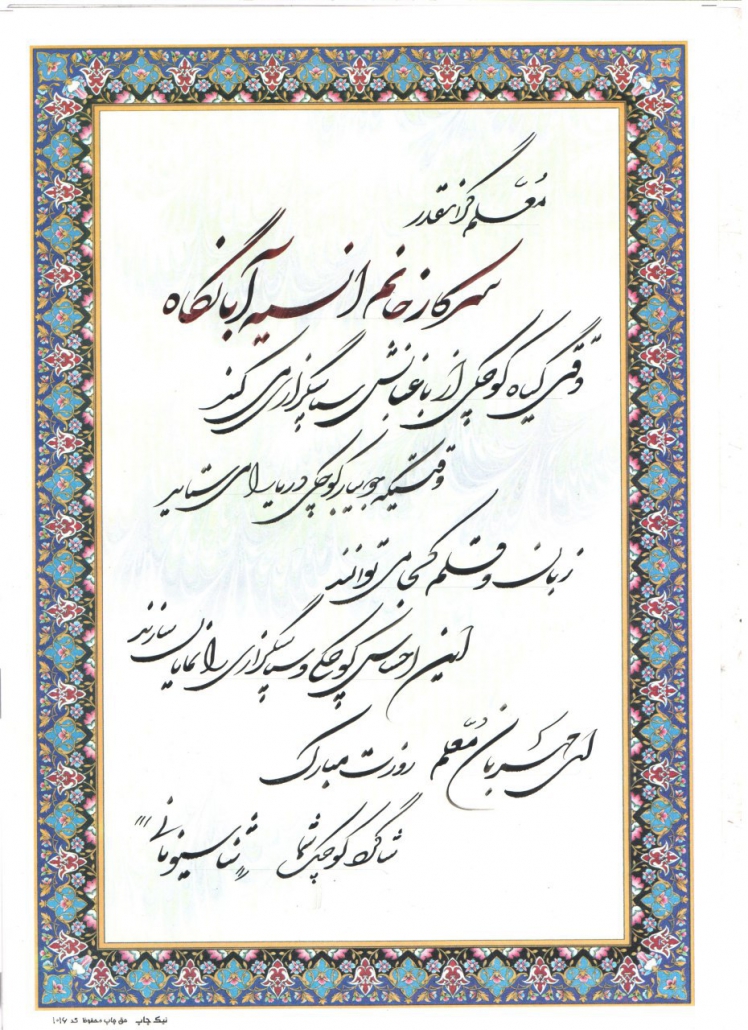 مُعلّم گرانقدر
سرکار خانم انسیه آبانگاه
وقتی گیاه کوچکی از باغبانش سپاسگزاری می کند
وقتیکه جویبار کوچکی دریا را می ستاید
زبان و قلم کجا می توانند
این احساس کوچکی و سپاسگزاری را نمایان سازند
ای مهربان مُعلّم روزت مبارک
شاگرد کوچک شما
نیک چاپ حق چاپ محفوظ کد ۱۰۱۶